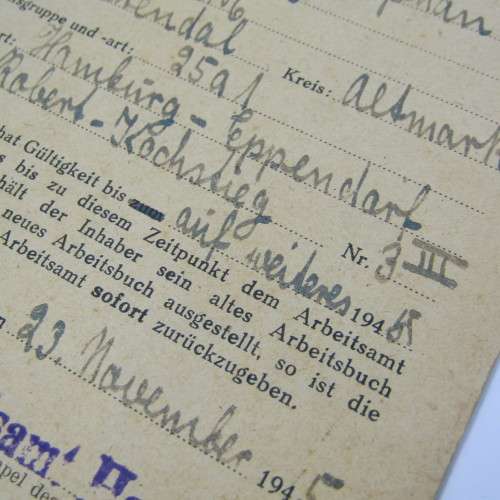 sgruppe und -art: 25a1 Kreis: Altmark
rt: Hamburg-Eppendorf
Robert-Kochstieg Nr. 3 III
hat Gültigkeit bis auf weiteres 194
s bis zu diesem Zeitpunkt dem Arbeitsamt
hält der Inhaber sein altes Arbeitsbuch
neues Arbeitsbuch ausgestellt, so ist die
Arbeitsamt sofort zurückzugeben.
n 23. November 1945
samt
pel des